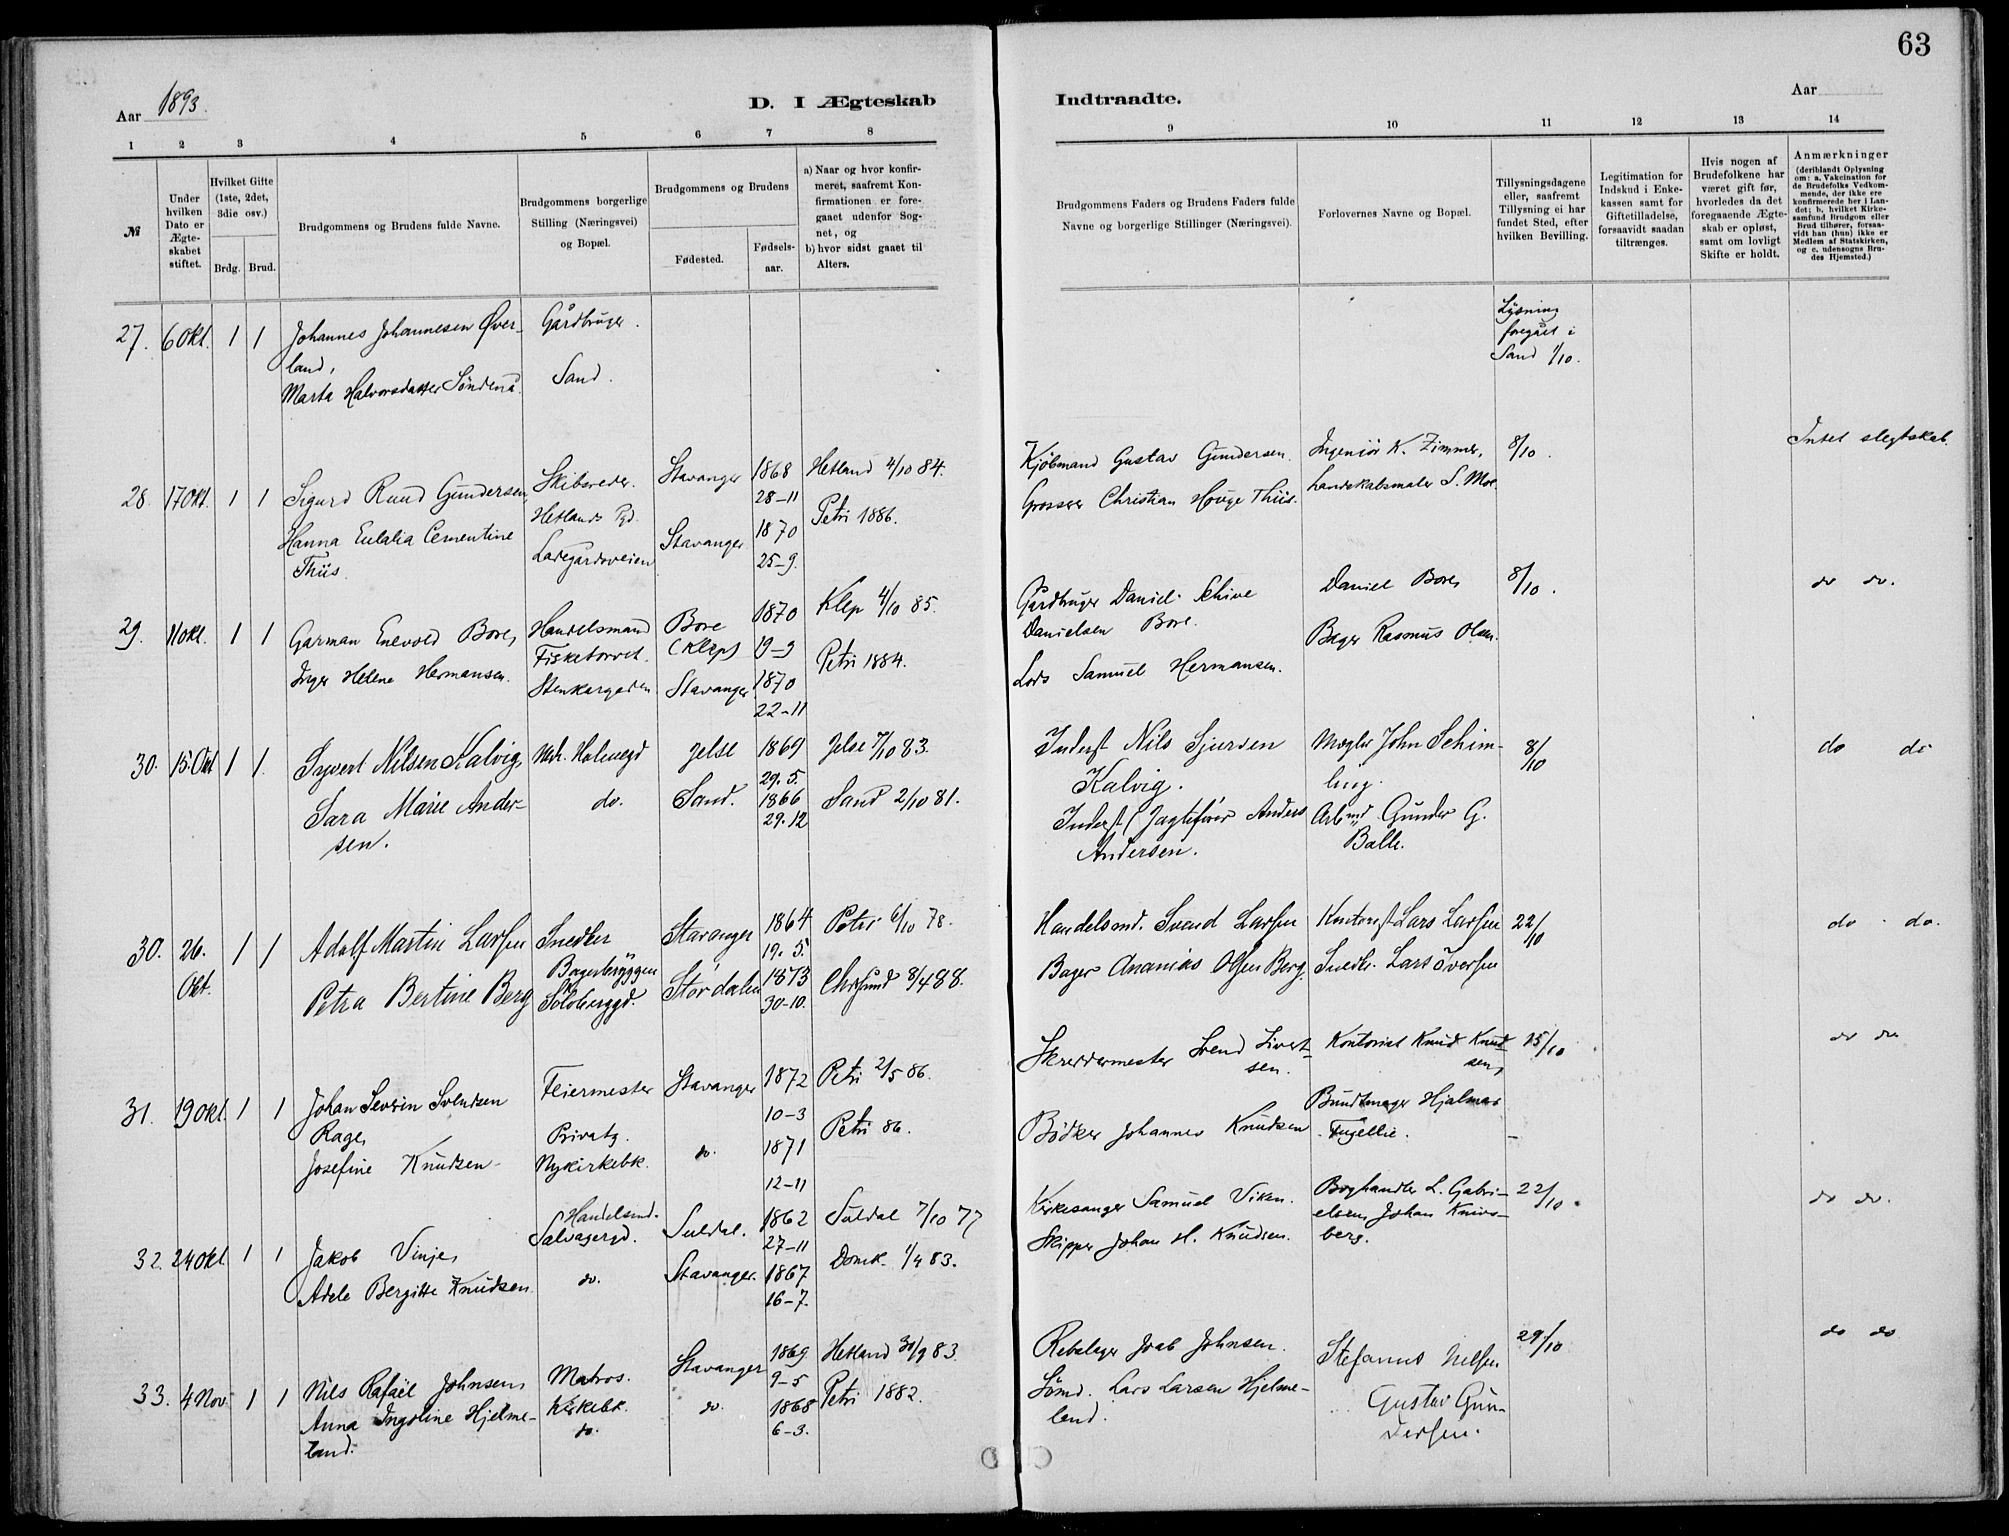 63
Aar 1893.
D. I Ægteskab
Indtraadte.
Aar
1 2 3 4 5 6 7 8
9 10 11 12 13 14
№
Under hvilken Dato er Ægte-skabet stiftet.
Hvilket Gifte (1ste, 2det, 3die osv.)
Brdg. Brud.
Brudgommens og Brudens fulde Navne.
Brudgommens borgerlige Stilling (Næringsvei) og Bopæl.
Brudgommens og Brudens
Fødested.
Fødsels-aar.
a) Naar og hvor konfir-meret, saafremt Kon-firmationen er fore-gaaet udenfor Sog-net, og
b) hvor sidst gaaet til Alters.
Brudgommens Faders og Brudens Faders fulde Navne og borgerlige Stillinger (Næringsvei).
Forlovernes Navne og Bopæl.
Tillysningsdagene eller, saafremt Tillysning ei har fundet Sted, efter hvilken Bevilling.
Legitimation for Indskud i Enke-kassen samt for Giftetilladelse, forsaavidt saadan tiltrænges.
Hvis nogen af Brudefolkene har været gift før, hvorledes da det foregaaende Ægte-skab er opløst, samt om lovligt Skifte er holdt.
Anmærkninger (deriblandt Oplysning om: a. Vakcination for de Brudefolks Vedkom-mende, der ikke ere konfirmerede her i Lan-det; b. hvilket Kirke-samfund Brudgom eller Brud tilhører, forsaa-vidt han (hun) ikke er Medlem af Statskirken, og c. udensogns Bru-des Hjemsted.)
27. 6 Okt. 1 1
Johannes Johannesen Øver-
land,
Marta Halvorsdatter Søndenå.
Gårdbruger.
Sand.
Lysning
foregået i
Sand 1/10.
28. 17 Okt. 1 1
Sigurd Ruud Gundersen,
Hanna Eulalia Cementine
Thiis.
Skibsreder.
Hetlands Pgd.
Ladegårdsveien
Stavanger
Stavanger
1868
28-11
1870
25-9.
Hetland 4/10 84.
Petri 1886.
Kjöbmand Gustav Gundersen.
Grosserer Christian Houge Thiis.
Ingeniör K. Zimmer,
Landskabsmaler S. Moe
8/10.
Intet slegtskab.
29. 11 Okt. 1 1
Garman Enevold Bore,
Inger Helene Hermansen.
Handelsmand
Fisketorvet.
Stenkargaden
Bore
(Klep)
Stavanger
1870
9-9
1870
22-11
Klep 4/10 85.
Petri 1884.
Gårdbruger Daniel Schive
Danielsen Bore.
Lods Samuel Hermansen.
Daniel Bore,
Bager Rasmus Olsen.
8/10.
do do.
30. 15 Okt 1 1.
Syvert Nilsen Kalvig,
Sara Marie Ander-
sen.
Ned. Holmegd
do.
Jelse
Sand.
1869
29.5.
1866
29.12
Jelse 7/10 83.
Sand 2/10 81.
Inderst Nils Sjursen
Kalvig.
Inderst (Jagtefører Anders
Andersen.
Mægler John Schim-
ling.
Arbmd Gunder G.
Balle.
8/10
do do
30. 26. Okt. 1 1
Adolf Martin Larsen
Petra Bertine Berg
Snedker
Bagerbryggen
Solobryggd.
Stavanger
Størdalen
1864
19.5.
1873
30-10.
Petri 6/10 78.
Chrsund 8/4 88.
Handelsmd. Svend Larsen
Bager Ananias Olsen Berg.
Kontorist Lars Larsen
Snedk. Lars Iversen
22/10
do do.
31. 19 Okt. 1 1
Johan Severin Svendsen
Rage,
Josefine Knudsen
Feiermester
Privatg.
Nykirkebk.
Stavanger
do.
1872
10-3
1871
12-11
Petri 2/5 86.
Petri 86.
Skreddermester Svend Sivert-
sen.
Bødker Johannes Knudsen
Kontorist Knud Knud-
sen,
Bundtmager Hjalmar
Fugellie.
15/10
do do
32. 24 Okt. 1 1
Jakob Vinje,
Adele Bergitte Knudsen.
Handelsmd.
Salvagergd.
do.
Suldal.
Stavanger.
1862
27-11
1867
16-7.
Suldal 7/10 77
Domk. 1/4 83.
Kirkesanger Samuel Viken.
Skipper Johan H. Knudsen.
Boghandler L. Gabri-
elsen, Johan Knivs-
berg.
22/10.
do do.
33. 4 Nov 1 1
Nils Rafael Johnsen,
Anna Ingoline Hjelme-
land.
Matros.
Kirkebk.
do.
Stavanger
do.
1869
9-5
1868
6-3.
Hetland 30/9 83.
Petri 1882.
Rebslager Joab Johnsen.
Sømd. Lars Larsen Hjelme-
land.
Stefanus Nilsen
Gustav Gun-
dersen.
29/10
do do